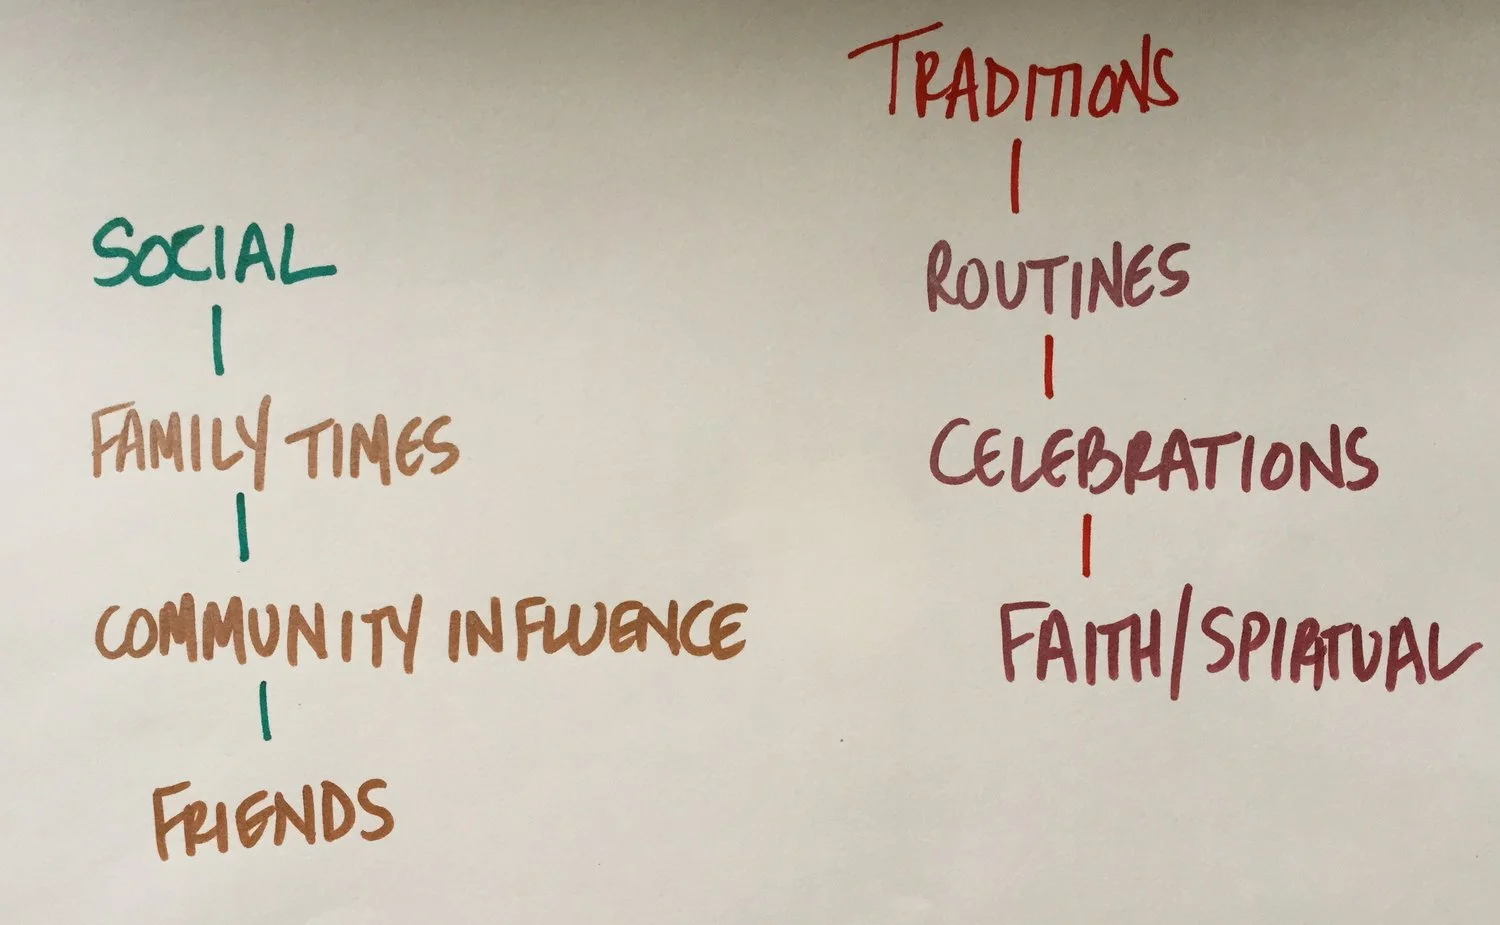 SOCIAL
FAMILY TIMES
COMMUNITY INFLUENCE
FRIENDS
TRADITIONS
ROUTINES
CELEBRATIONS
FAITH/SPIRTUAL